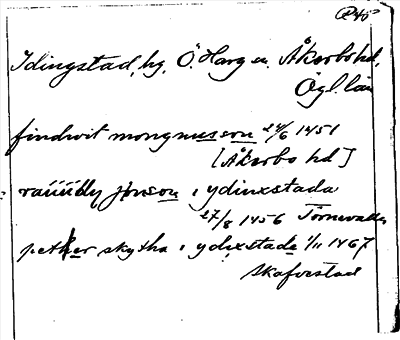 Idingstad, hg, Ö. Harg sn. Åkerbo hd,
Ögl. län
findwit mongnusson 24/6 1451
[Åkerbo hd]
jonson i ydinxstada
27/8 1456 Törnevalla
pether skytha i ydixstade 1/11 1467
Skafvestad